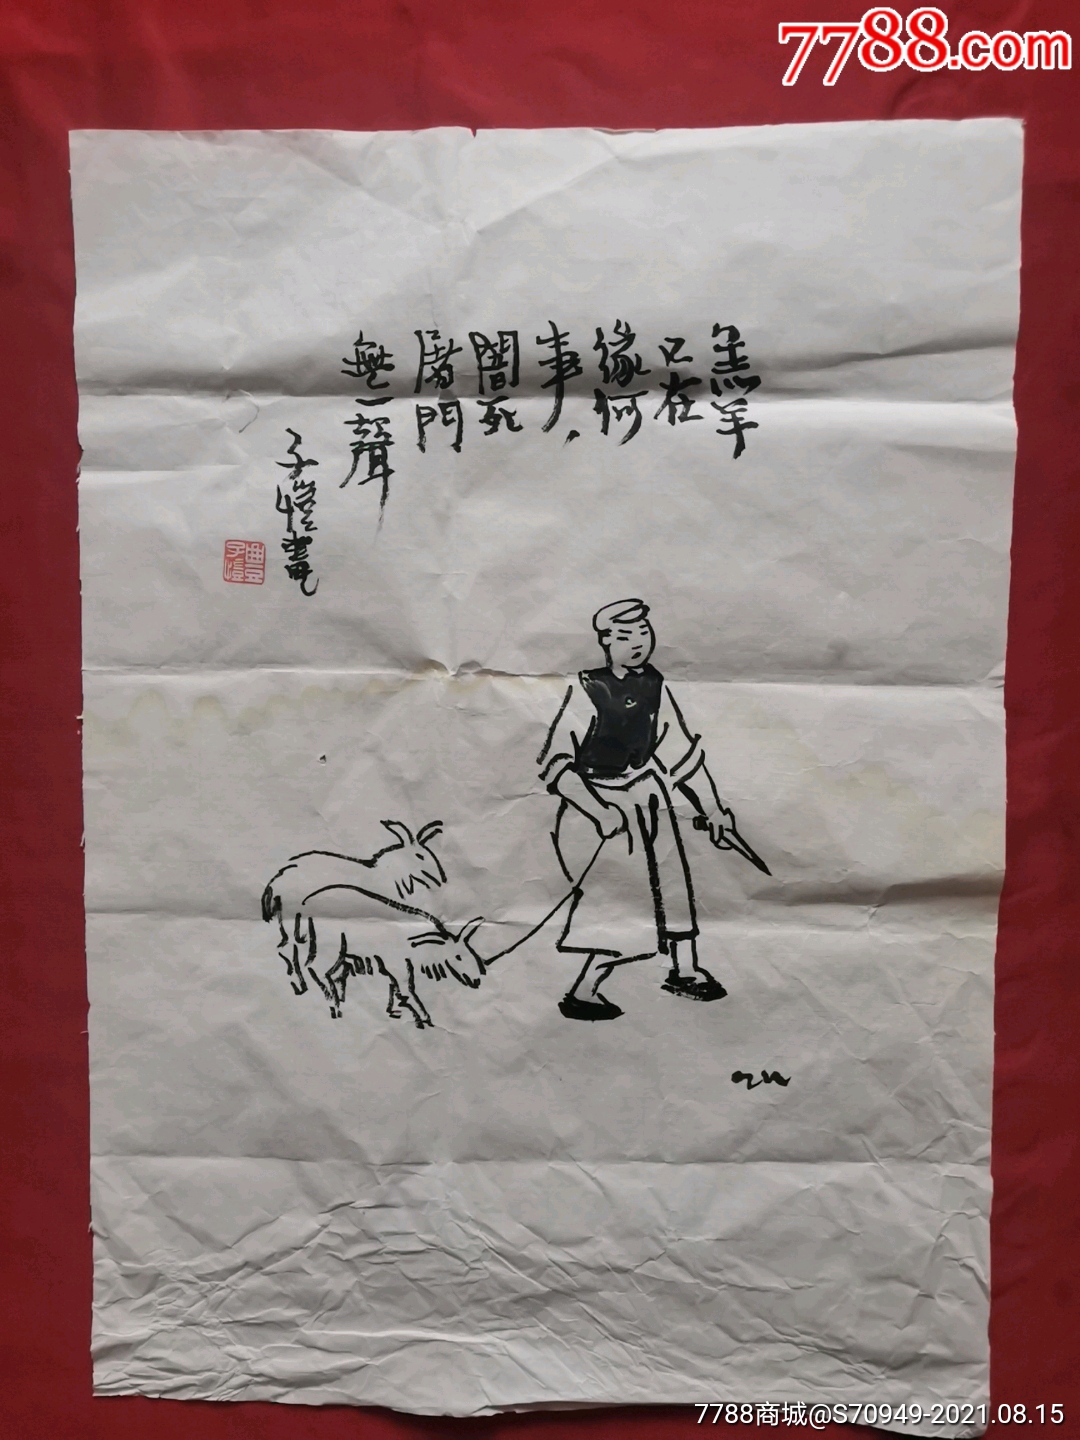 7788.com
羔羊
口在
緣何
事、
闇死
屠門
無一聲
子愷畫
豐子愷
7788商城@S70949-2021.08.15